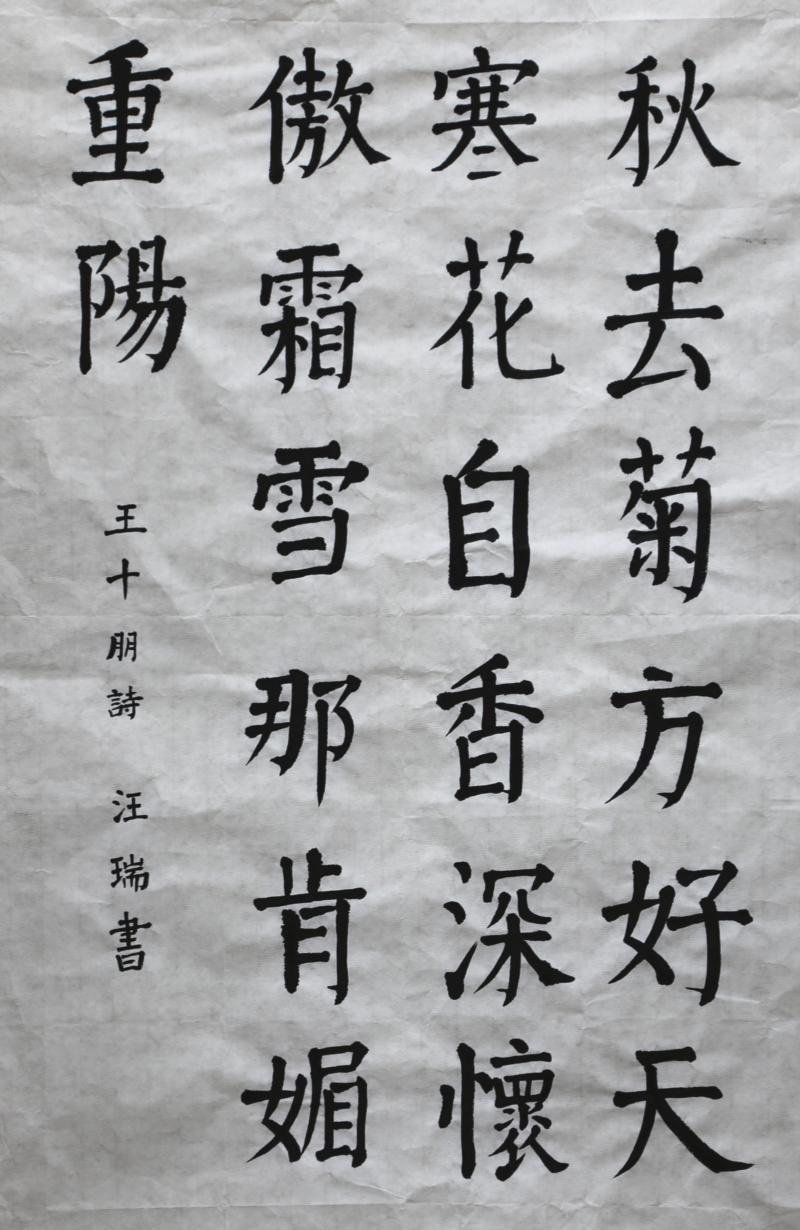 秋去菊方好天
寒花自香深懷
傲霜雪那肯媚
重陽
王十朋詩 汪瑞書